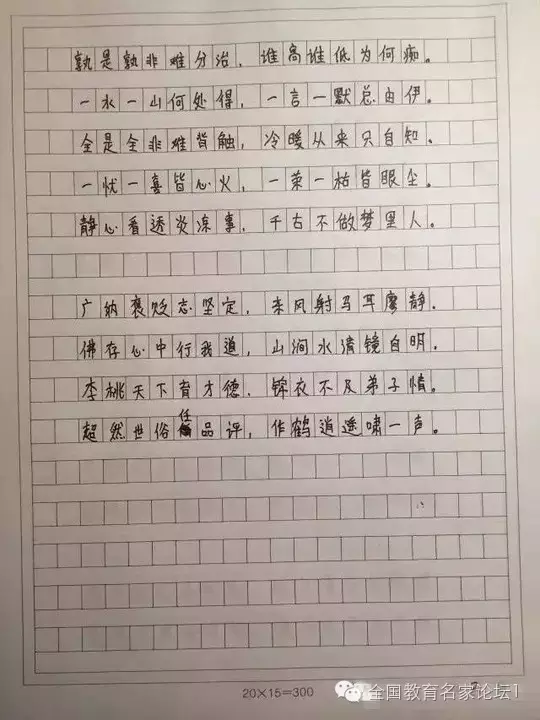 孰是孰非难分治，谁高谁低为何痴。
一水一山何处得，一言一默总由伊。
全是全非难背触，冷暖从来只自知。
一忧一喜皆心火，一荣一枯皆眼尘。
静心看透炎凉事，千古不做梦里人。
广纳褒贬志坚定，东风射马耳廖静。
佛存心中行我道，山涧水清镜自明。
李桃天下育才德，锦衣不及弟子情。
超然世俗任品评，作鹤逍遥啸一声。
20×15=300
全国教育名家论坛1